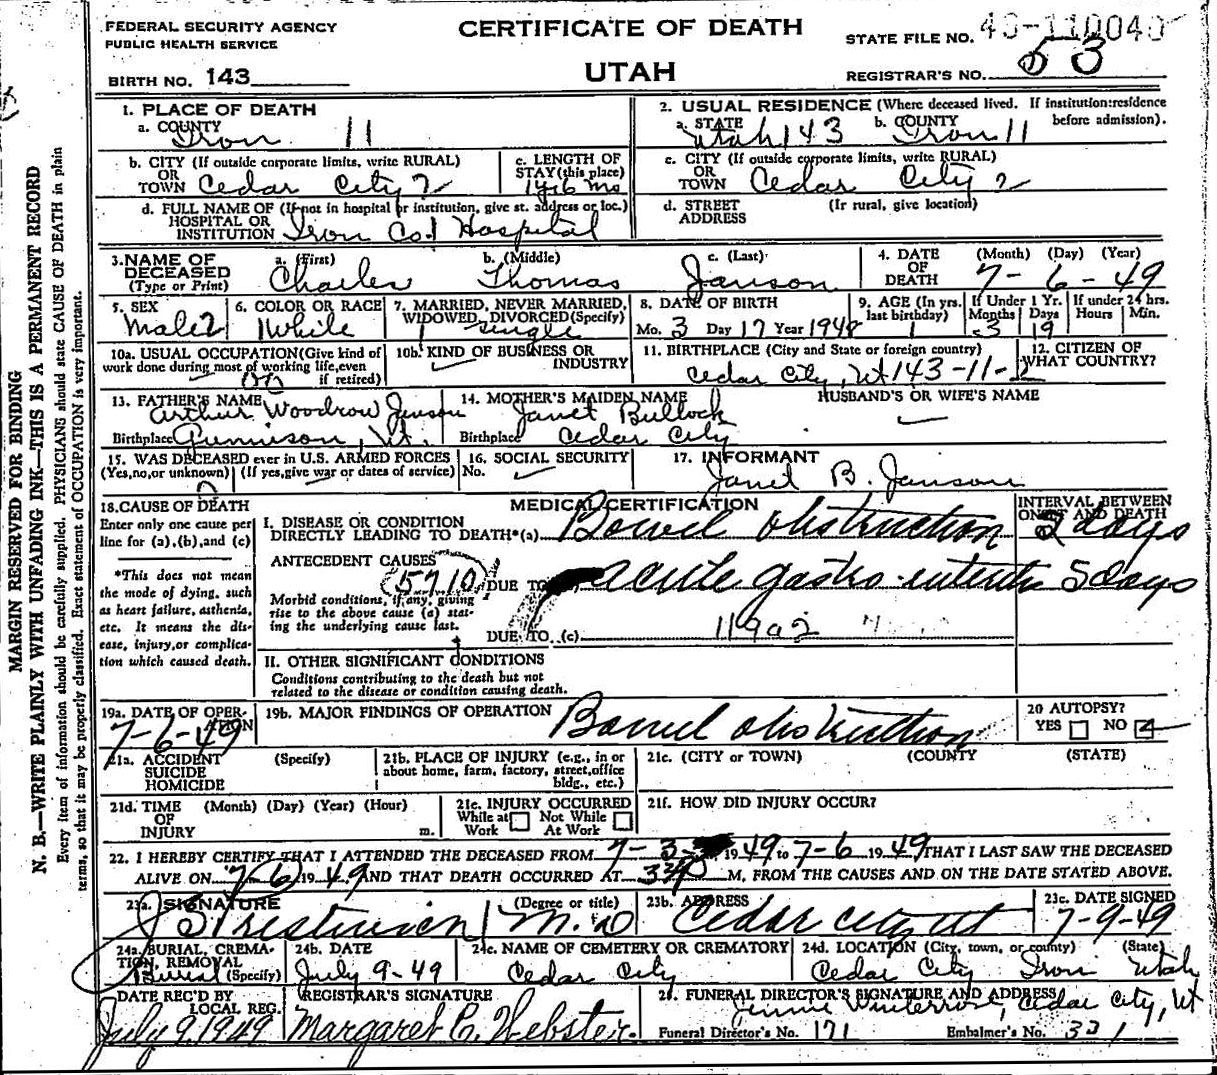 FEDERAL SECURITY AGENCY
PUBLIC HEALTH SERVICE
CERTIFICATE OF DEATH
STATE FILE NO. 49-110040
BIRTH NO. 143
UTAH
REGISTRAR'S NO. 53
1. PLACE OF DEATH
a. COUNTY Iron 11
2. USUAL RESIDENCE (Where deceased lived. If institution:residence before admission).
a. STATE Utah 143 b. COUNTY Iron 11
b. CITY (If outside corporate limits, write RURAL)
OR
TOWN Cedar City 2
c. LENGTH OF
STAY (this place)
c. CITY (If outside corporate limits, write RURAL)
OR
TOWN Cedar City 2
d. FULL NAME OF (If not in hospital or institution, give st. address or loc.)
HOSPITAL OR
INSTITUTION Iron Co. Hospital
d. STREET (If rural, give location)
ADDRESS
3. NAME OF DECEASED (Type or Print)
a. (First) Charles
b. (Middle) Thomas
c. (Last) Janson
4. DATE OF DEATH (Month) (Day) (Year)
7-6-49
5. SEX
Male 2
6. COLOR OR RACE
White
7. MARRIED, NEVER MARRIED, WIDOWED, DIVORCED (Specify)
single
8. DATE OF BIRTH
Mo. 3 Day 17 Year 1948
9. AGE (In yrs. last birthday) 1
If Under 1 Yr. Months 3 Days 19
If under 24 hrs. Hours Min.
10a. USUAL OCCUPATION (Give kind of work done during most of working life, even if retired)
10b. KIND OF BUSINESS OR INDUSTRY
11. BIRTHPLACE (City and State or foreign country)
Cedar City, Ut 143-11-2
12. CITIZEN OF WHAT COUNTRY?
13. FATHER'S NAME
Arthur Woodrow Janson
Birthplace Gunnison, Ut.
14. MOTHER'S MAIDEN NAME
Janet Bullock
Birthplace Cedar City
HUSBAND'S OR WIFE'S NAME
15. WAS DECEASED ever in U.S. ARMED FORCES
(Yes, no, or unknown) (If yes, give war or dates of service)
16. SOCIAL SECURITY
No.
17. INFORMANT
Janet B. Janson
18. CAUSE OF DEATH
Enter only one cause per line for (a), (b), and (c)
*This does not mean the mode of dying, such as heart failure, asthenia, etc. It means the disease, injury, or complication which caused death.
MEDICAL CERTIFICATION
I. DISEASE OR CONDITION
DIRECTLY LEADING TO DEATH*(a) Bowel obstruction
INTERVAL BETWEEN ONSET AND DEATH
2 days
ANTECEDENT CAUSES
5710
Morbid conditions, if any, giving rise to the above cause (a) stating the underlying cause last.
DUE TO acute gastro enteritis 5 days
DUE TO (c) 119a2
II. OTHER SIGNIFICANT CONDITIONS
Conditions contributing to the death but not related to the disease or condition causing death.
19a. DATE OF OPERATION
7-6-49
19b. MAJOR FINDINGS OF OPERATION Bowel obstruction
20 AUTOPSY?
YES NO
21a. ACCIDENT SUICIDE HOMICIDE (Specify)
21b. PLACE OF INJURY (e.g., in or about home, farm, factory, street, office bldg., etc.)
21c. (CITY OR TOWN) (COUNTY) (STATE)
21d. TIME OF INJURY (Month) (Day) (Year) (Hour) m.
21e. INJURY OCCURRED
While at Work Not While At Work
21f. HOW DID INJURY OCCUR?
22. I HEREBY CERTIFY THAT I ATTENDED THE DECEASED FROM 7-3- 1949 TO 7-6 1949 THAT I LAST SAW THE DECEASED
ALIVE ON 7-6 1949 AND THAT DEATH OCCURRED AT M, FROM THE CAUSES AND ON THE DATE STATED ABOVE.
23a. SIGNATURE (Degree or title)
M.D
23b. ADDRESS
Cedar City Ut
23c. DATE SIGNED
7-9-49
24a. BURIAL, CREMATION, REMOVAL (Specify)
Burial
24b. DATE
July 9-49
24c. NAME OF CEMETERY OR CREMATORY
Cedar City
24d. LOCATION (City, town, or county) (State)
Cedar City Iron Utah
DATE REC'D BY LOCAL REG.
July 9, 1949
REGISTRAR'S SIGNATURE
Margaret C. Webster.
25. FUNERAL DIRECTOR'S SIGNATURE AND ADDRESS
Cedar City, Ut
Funeral Director's No. 171 Embalmer's No. 331
MARGIN RESERVED FOR BINDING
N. B.—WRITE PLAINLY WITH UNFADING INK—THIS IS A PERMANENT RECORD
Every item of information should be carefully supplied. PHYSICIANS should state CAUSE OF DEATH in plain
terms, so that it may be properly classified. Exact statement of OCCUPATION is very important.